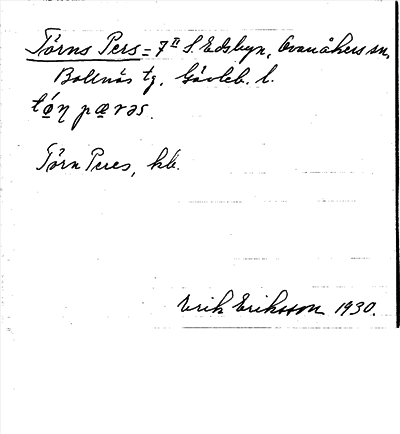 Törns Pers = 7 II S. Edsbyn, Ovanåkers sn,
Bollnäs tg. Gävleb. l.
tǿŋ pærəs.
Törn Pers, hb.
Erik Eriksson 1930.